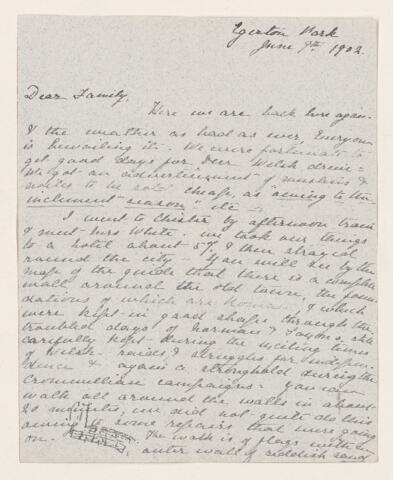 Egerton Park
June 9th 1902.
Dear Family,
Here we are back here again
& the weather as bad as ever, Everyone
is bewailing it. We were fortunate to
get good days for our Welsh drive -
We got an advertisement of muslins &
to be sold cheap, as "owing to the
inclement season" etc -
I went to Chester by afternoon train
& met Mrs White. We took our things
to a hotel about 5/ & then strayed
round the city - You will see by the
map of the guide that there is a complete
wall around the old town, the foun-
dations of which are Roman, & which
were kept in good shape through the
troubled days of Normans & Saxons, still
carefully kept during the exciting times
of Welsh raids & struggles for indepen-
dence & again a stronghold during the
Cromwellian campaigns. You can
walk all around the walls in about
20 minutes, we did not quite do this
owing to some repairs that were going
on. The walk is of flags with an
outer wall of reddish sand